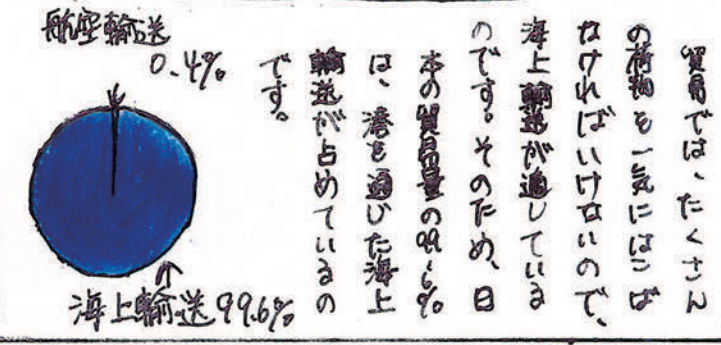 貿易では、たくさん
の荷物を一気にはこば
なければいけないので、
海上輸送が適している
のです。そのため、日
本の貿易量の99.6%
は、港を通じた海上
輸送が占めているの
です。
航空輸送
0.4%
海上輸送99.6%